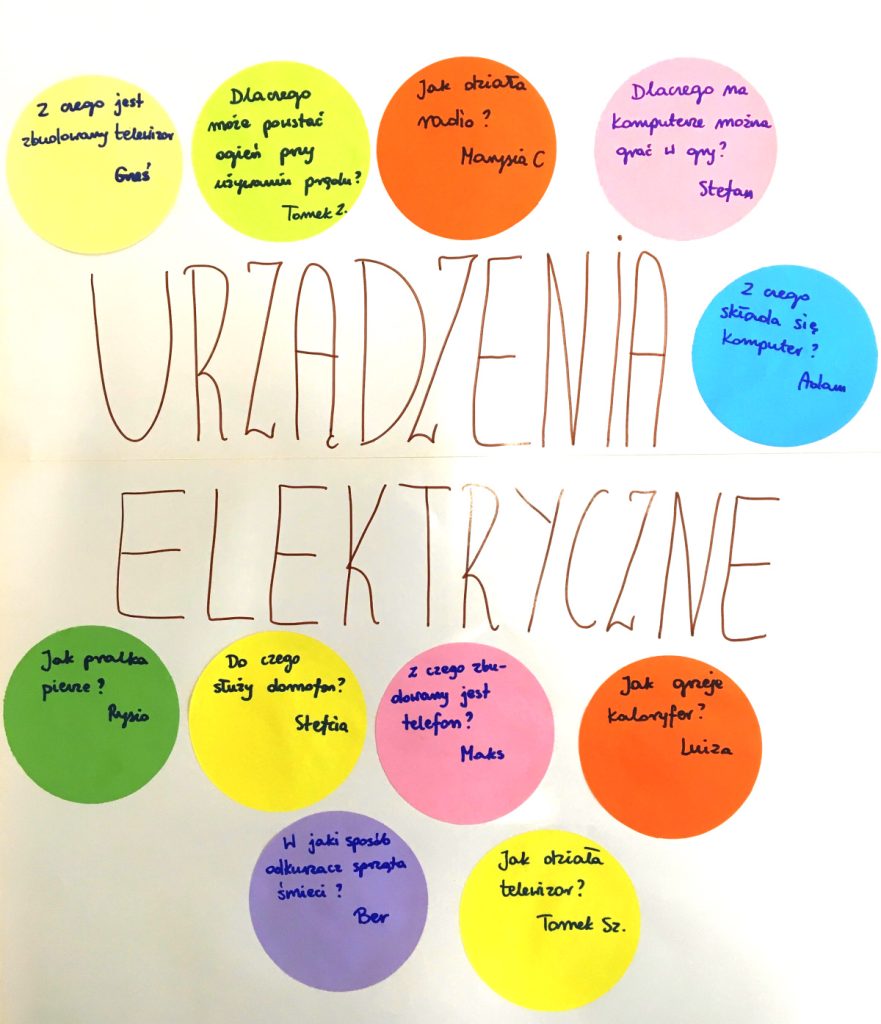 Z czego jest
zbudowany telewizor
Gneś
Dlaczego
może powstać
ogień przy
używaniu prądu?
Tomek Z.
Jak działa
radio?
Marysia C
Dlaczego na
komputerze można
grać w gry?
Stefan
Z czego
składa się
komputer?
Adam
URZĄDZENIA
ELEKTRYCZNE
Jak pralka
pierze?
Rysio
Do czego
służy domofon?
Stefcia
Z czego zbu-
dowany jest
telefon?
Maks
Jak grzeje
kaloryfer?
Luiza
W jaki sposób
odkurzacz sprząta
śmieci?
Ber
Jak działa
telewizor?
Tomek Sz.